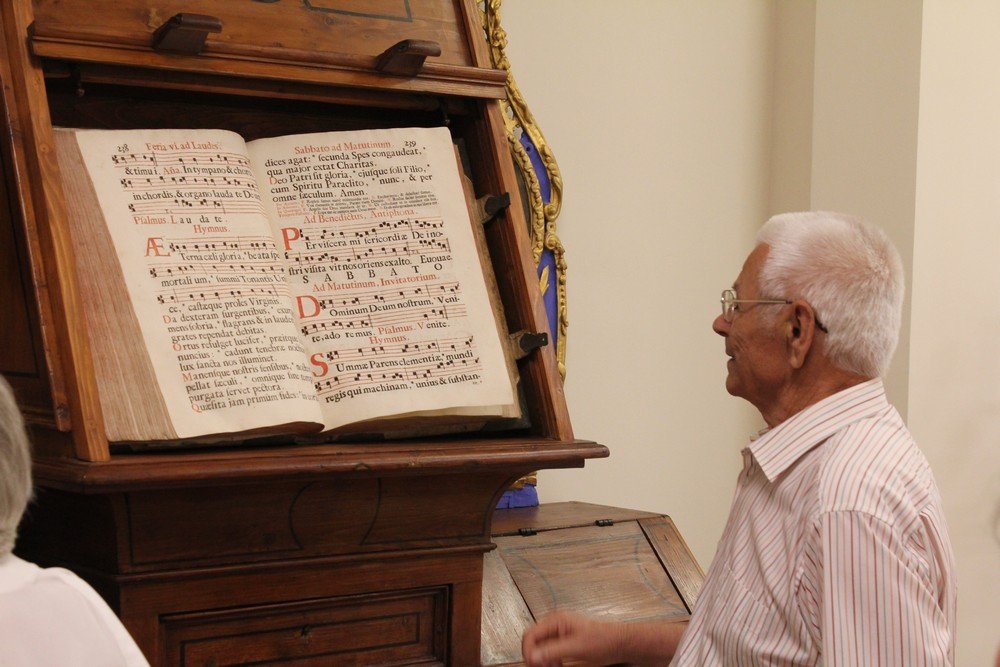 238 Feria vi. ad Laudes.
& timui. Aña. In tympano & choro,
in chordis, & organo lauda te Deum
Psalmus. L au da te.
Hymnus.
Æ
Terna cæli gloria, beata spe
mortali um, summi Tonantis Un
ce, castæque proles Virginis.
Da dexteram surgentibus, exur
mens sobria, flagrans & in laudem
grates rependat debitas.
Ortus refulget lucifer, præitque
nuncius: cadunt tenebræ
lux sancta nos illuminet.
Manensque nostris sensibus,
pellat sæculi, omnique
purgata servet pectora
Quæsita jam primum fides
Sabbato ad Matutinum. 239
dices agat: secunda Spes congaudeat,
qua major extat Charitas.
Deo Patri sit gloria, ejusque soli Filio,
cum Spiritu Paraclito, nunc, & per
omne sæculum. Amen.
Ad Benedictus, Antiphona.
Per viscera mi sericordiæ De i no-
stri visita vit nos oriens ex alto. Euouae.
SABBATO
Ad Matutinum, Invitatorium.
Dominum Deum nostrum, Veni-
te, ado remus. Psalmus. Venite.
Hymnus.
Summæ Parens clementiæ, mundi
regis qui machinam, unius & substan-